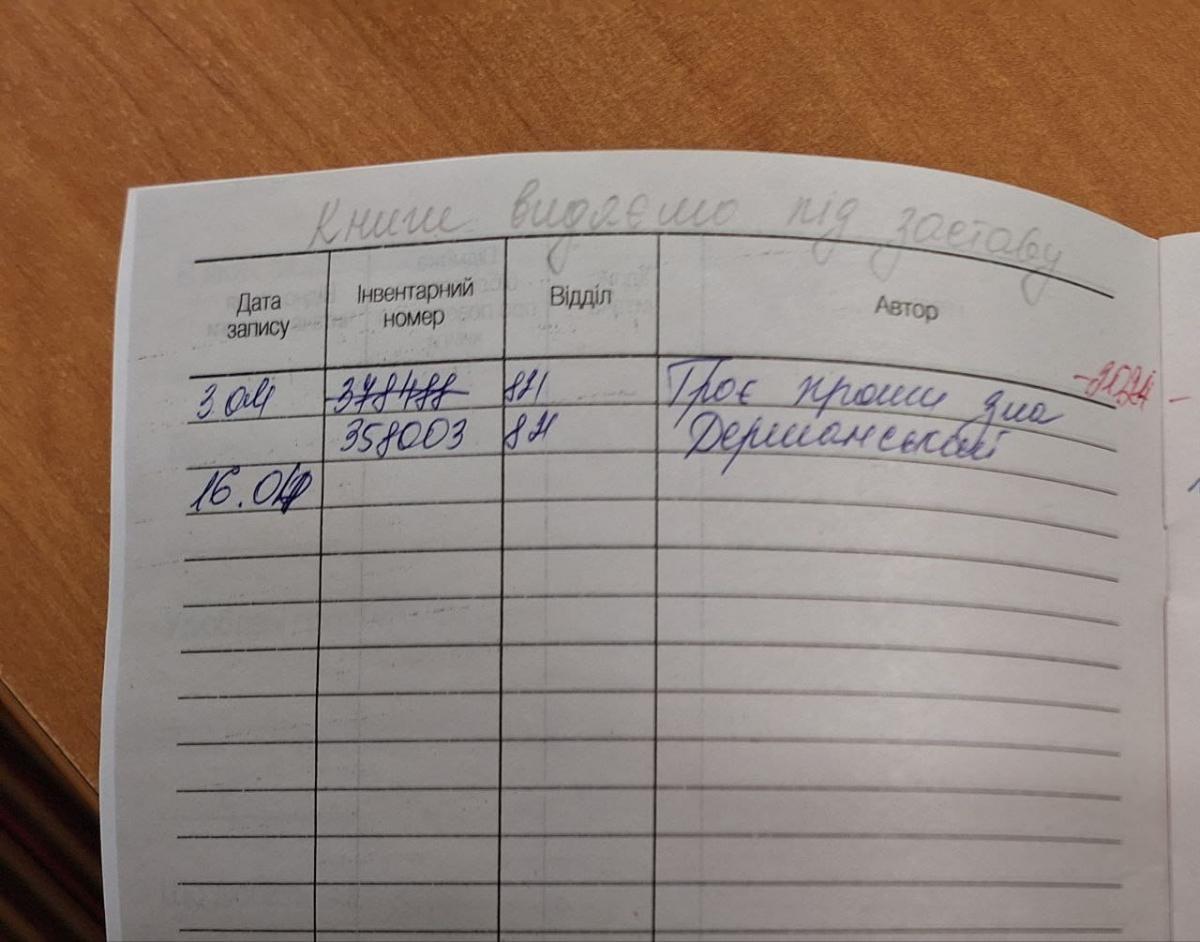 Книги видаємо під заставу
Дата запису Інвентарний номер Відділ Автор
3.04 378488 84 Троє проти зла
358003 84 Дерманський
16.04